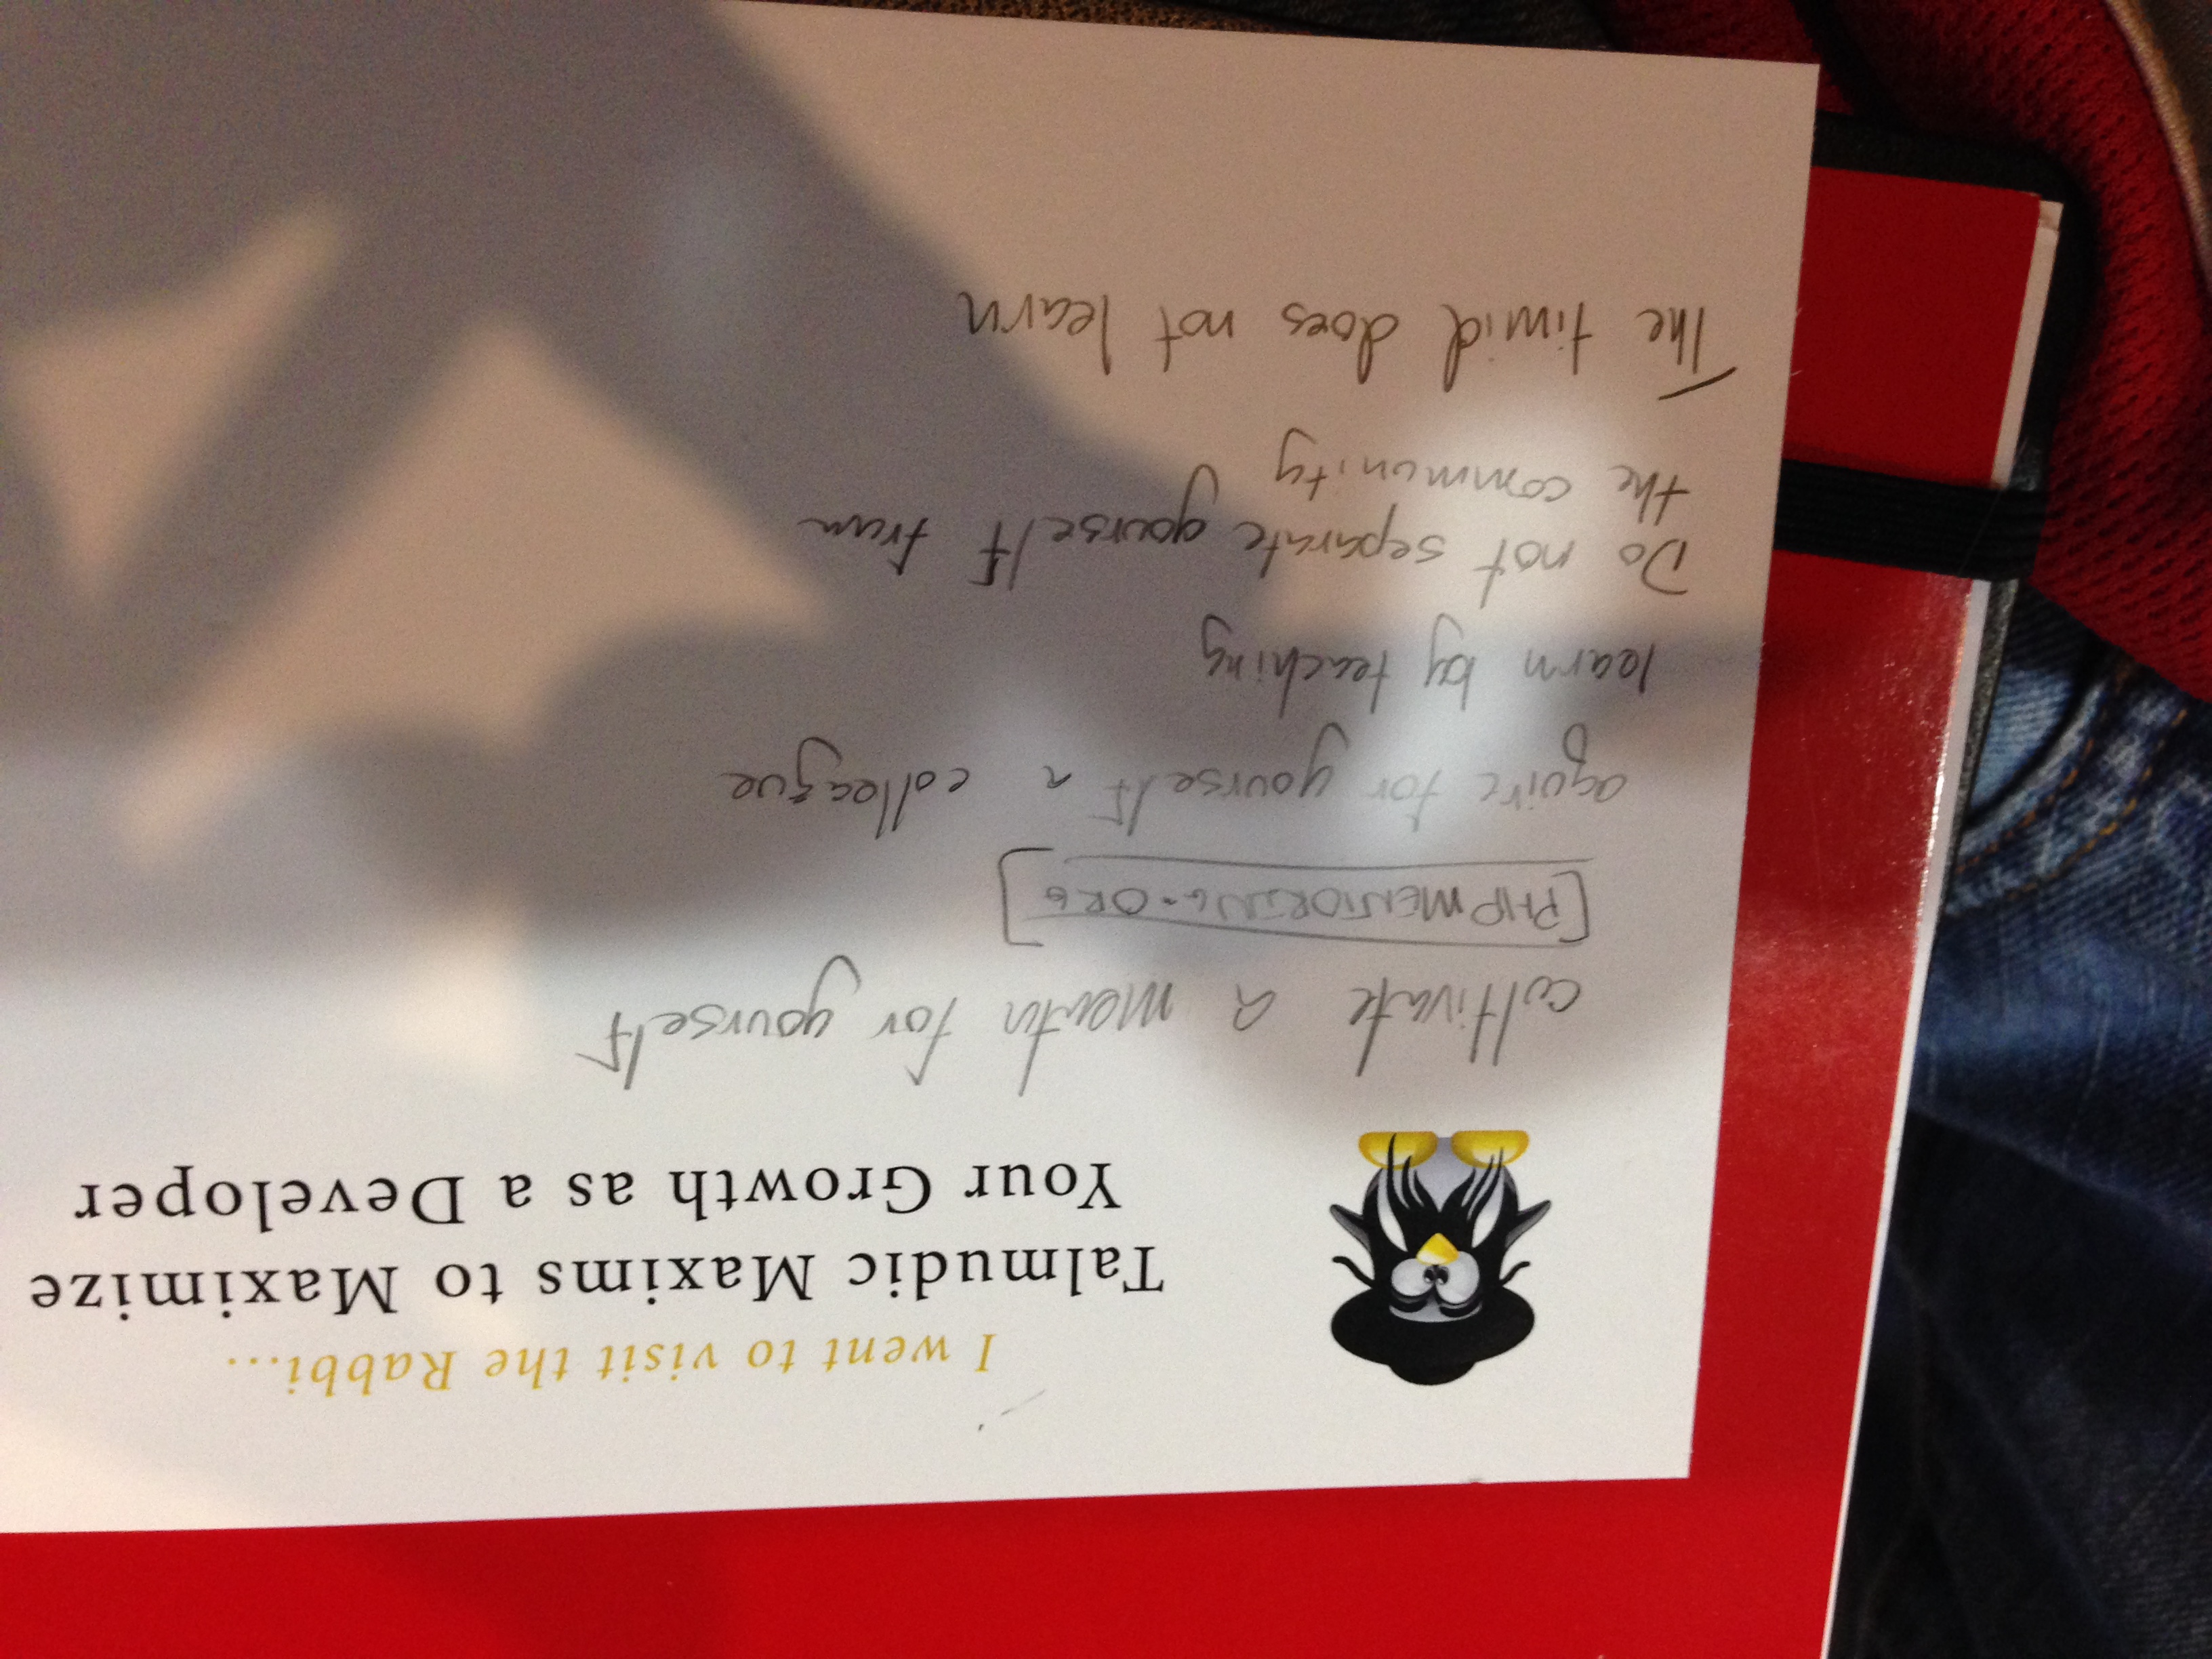 I went to visit the Rabbi...
Talmudic Maxims to Maximize
Your Growth as a Developer
cultivate a mentor for yourself
[PHPMENTORING.ORG]
aquire for yourself a colleague
learn by teaching
Do not separate yourself from
the community
The timid does not learn